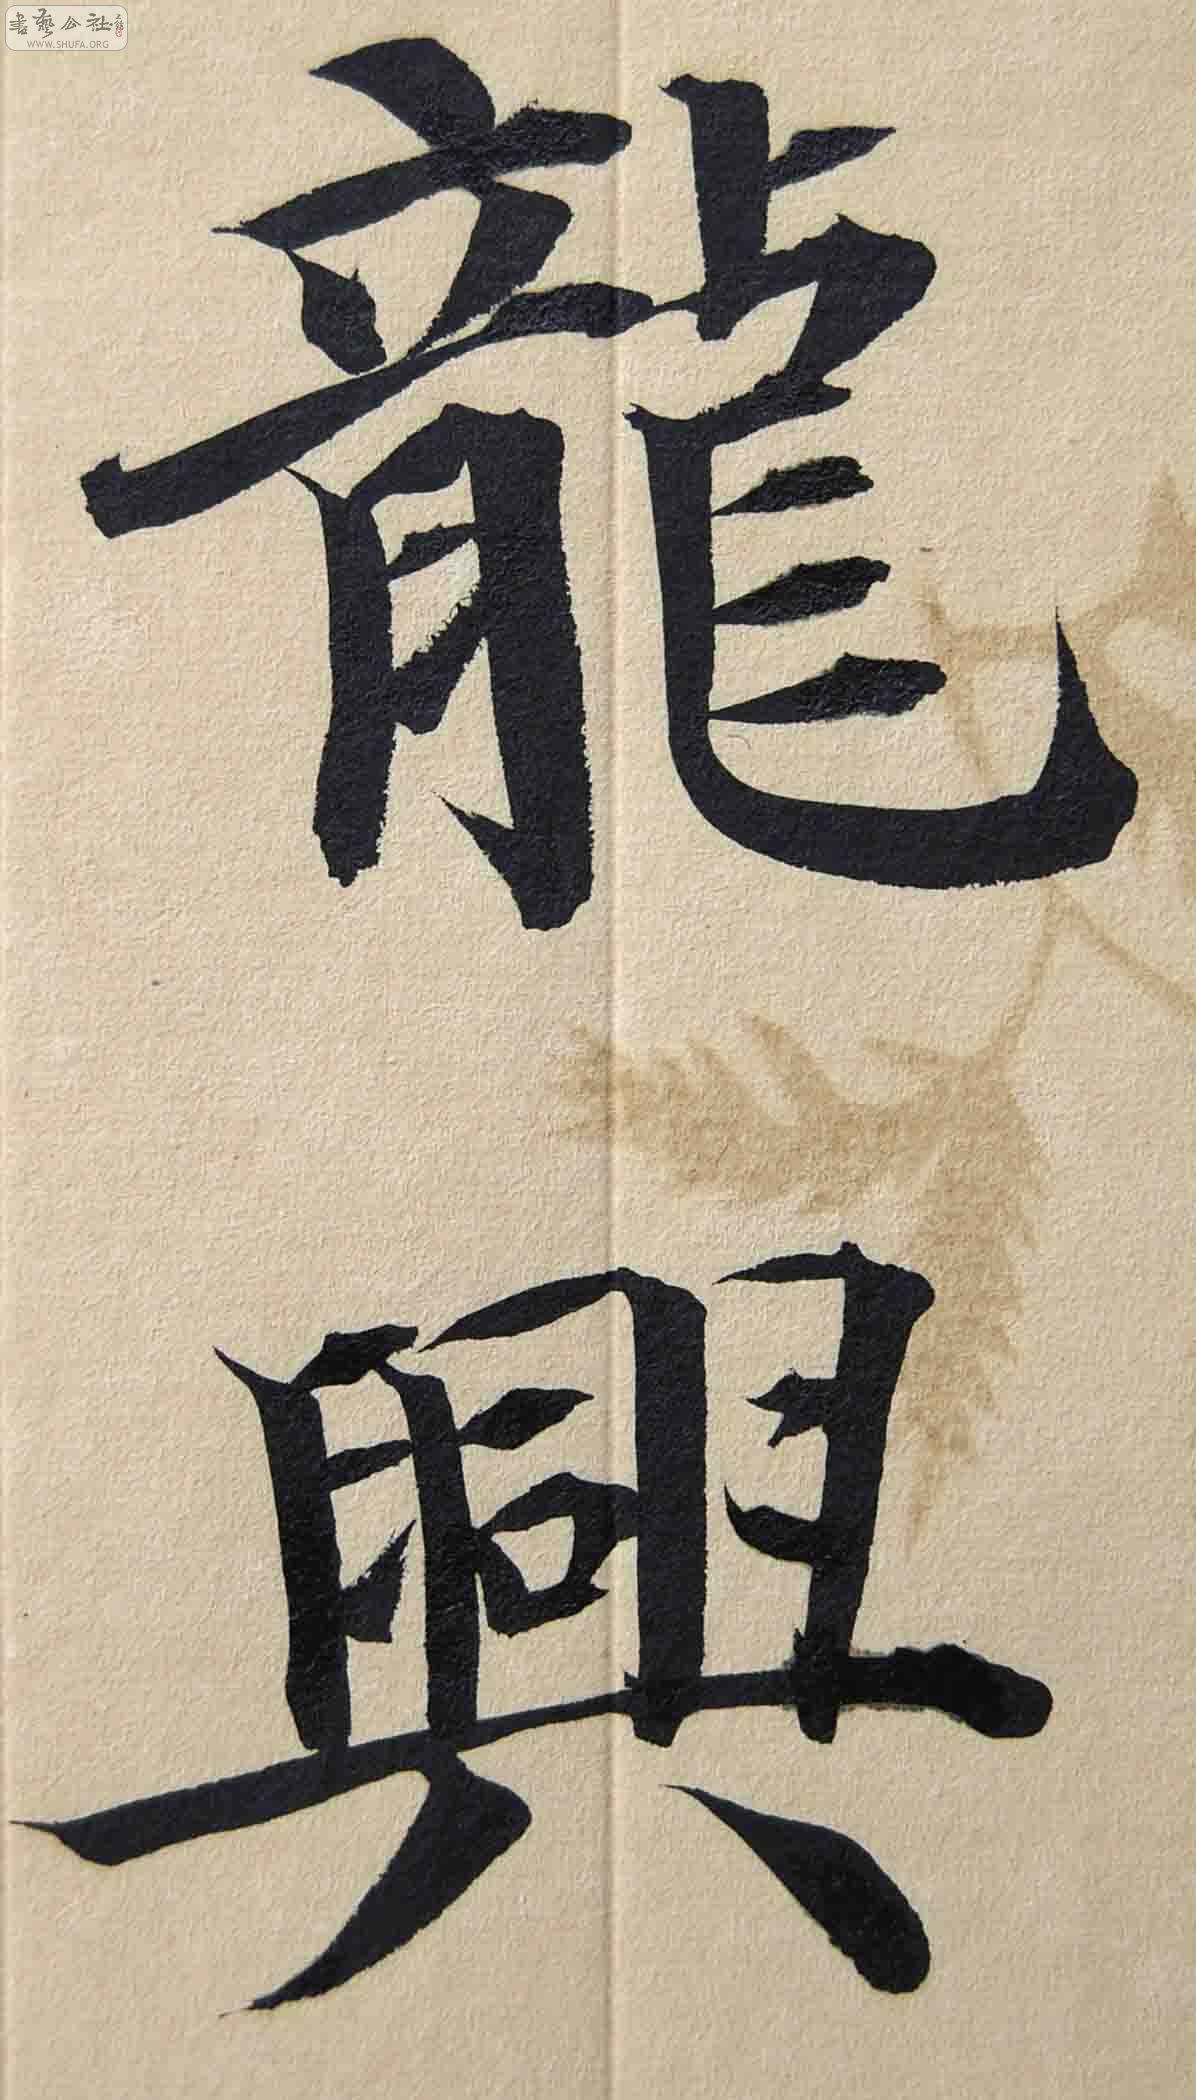 書藝公社
WWW.SHUFA.ORG
龍
興